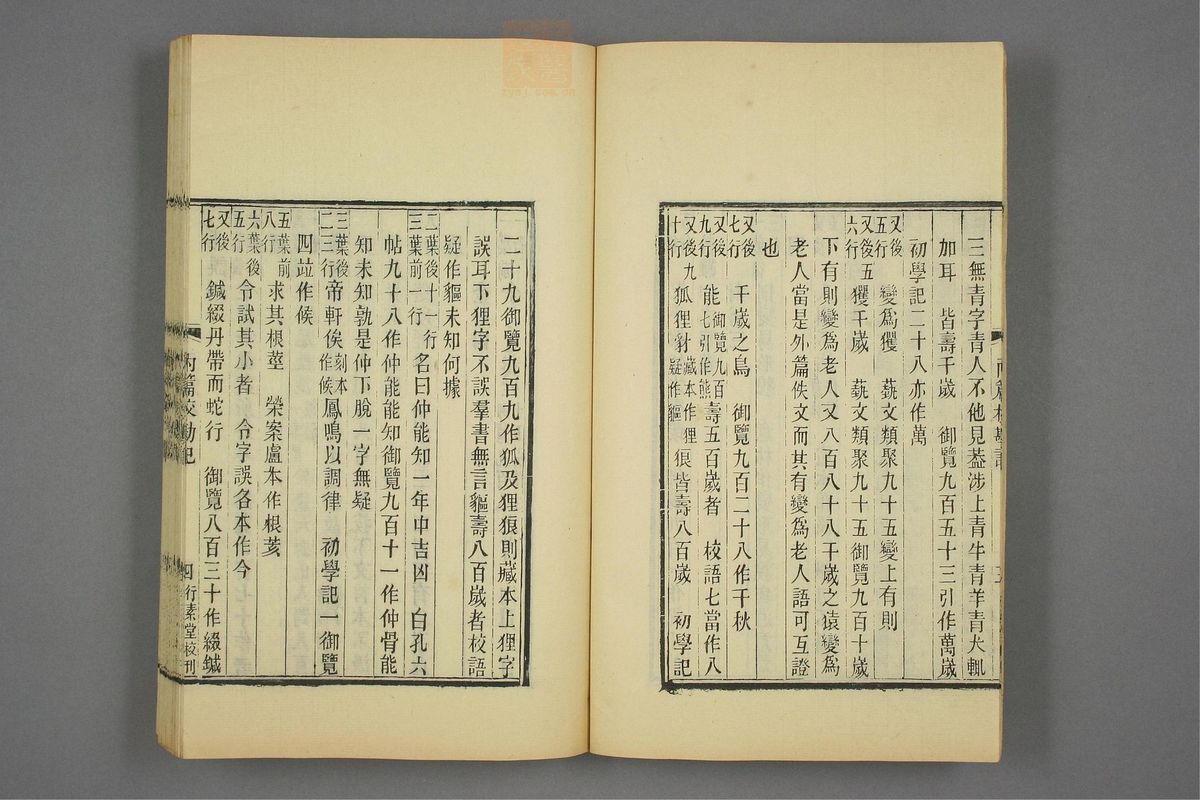 三無青字青人不他見葢涉上青牛青羊青犬輒
加耳　皆壽千歲　御覽九百五十三引作萬歲
初學記二十八亦作萬
又後五行　變爲玃　蓺文類聚九十五變上有則
又後五六行　玃千歲　蓺文類聚九十五御覽九百十歲
下有則變爲老人又八百八十八千歲之猿變爲
老人當是外篇佚文而其有變爲老人語可互證
也
又後七行　千歲之鳥　御覽九百二十八作千秋
又後九行　能御覽九百七引作熊壽五百歲者　校語七當作八
又後九十行　狐狸豺藏本作狸疑作貙狼皆壽八百歲　初學記
二十九御覽九百九作狐及狸狼則藏本上狸字
誤耳下狸字不誤羣書無言貙壽八百歲者校語
疑作貙未知何據
二葉後十一行三葉前一行　名曰仲能知一年中吉凶　白孔六
帖九十八作仲能能知御覽九百十一作仲骨能
知未知孰是仲下脫一字無疑
三葉後二三行　帝軒俟刻本作候鳳鳴以調律　初學記一御覽
四竝作候
五葉前八行　求其根莖　榮案盧本作根荄
六葉後五行　令試其小者　令字誤各本作今
又後七行　鍼綴丹帶而蛇行　御覽八百三十作綴鍼
內篇校勘記
四　行素堂校刊